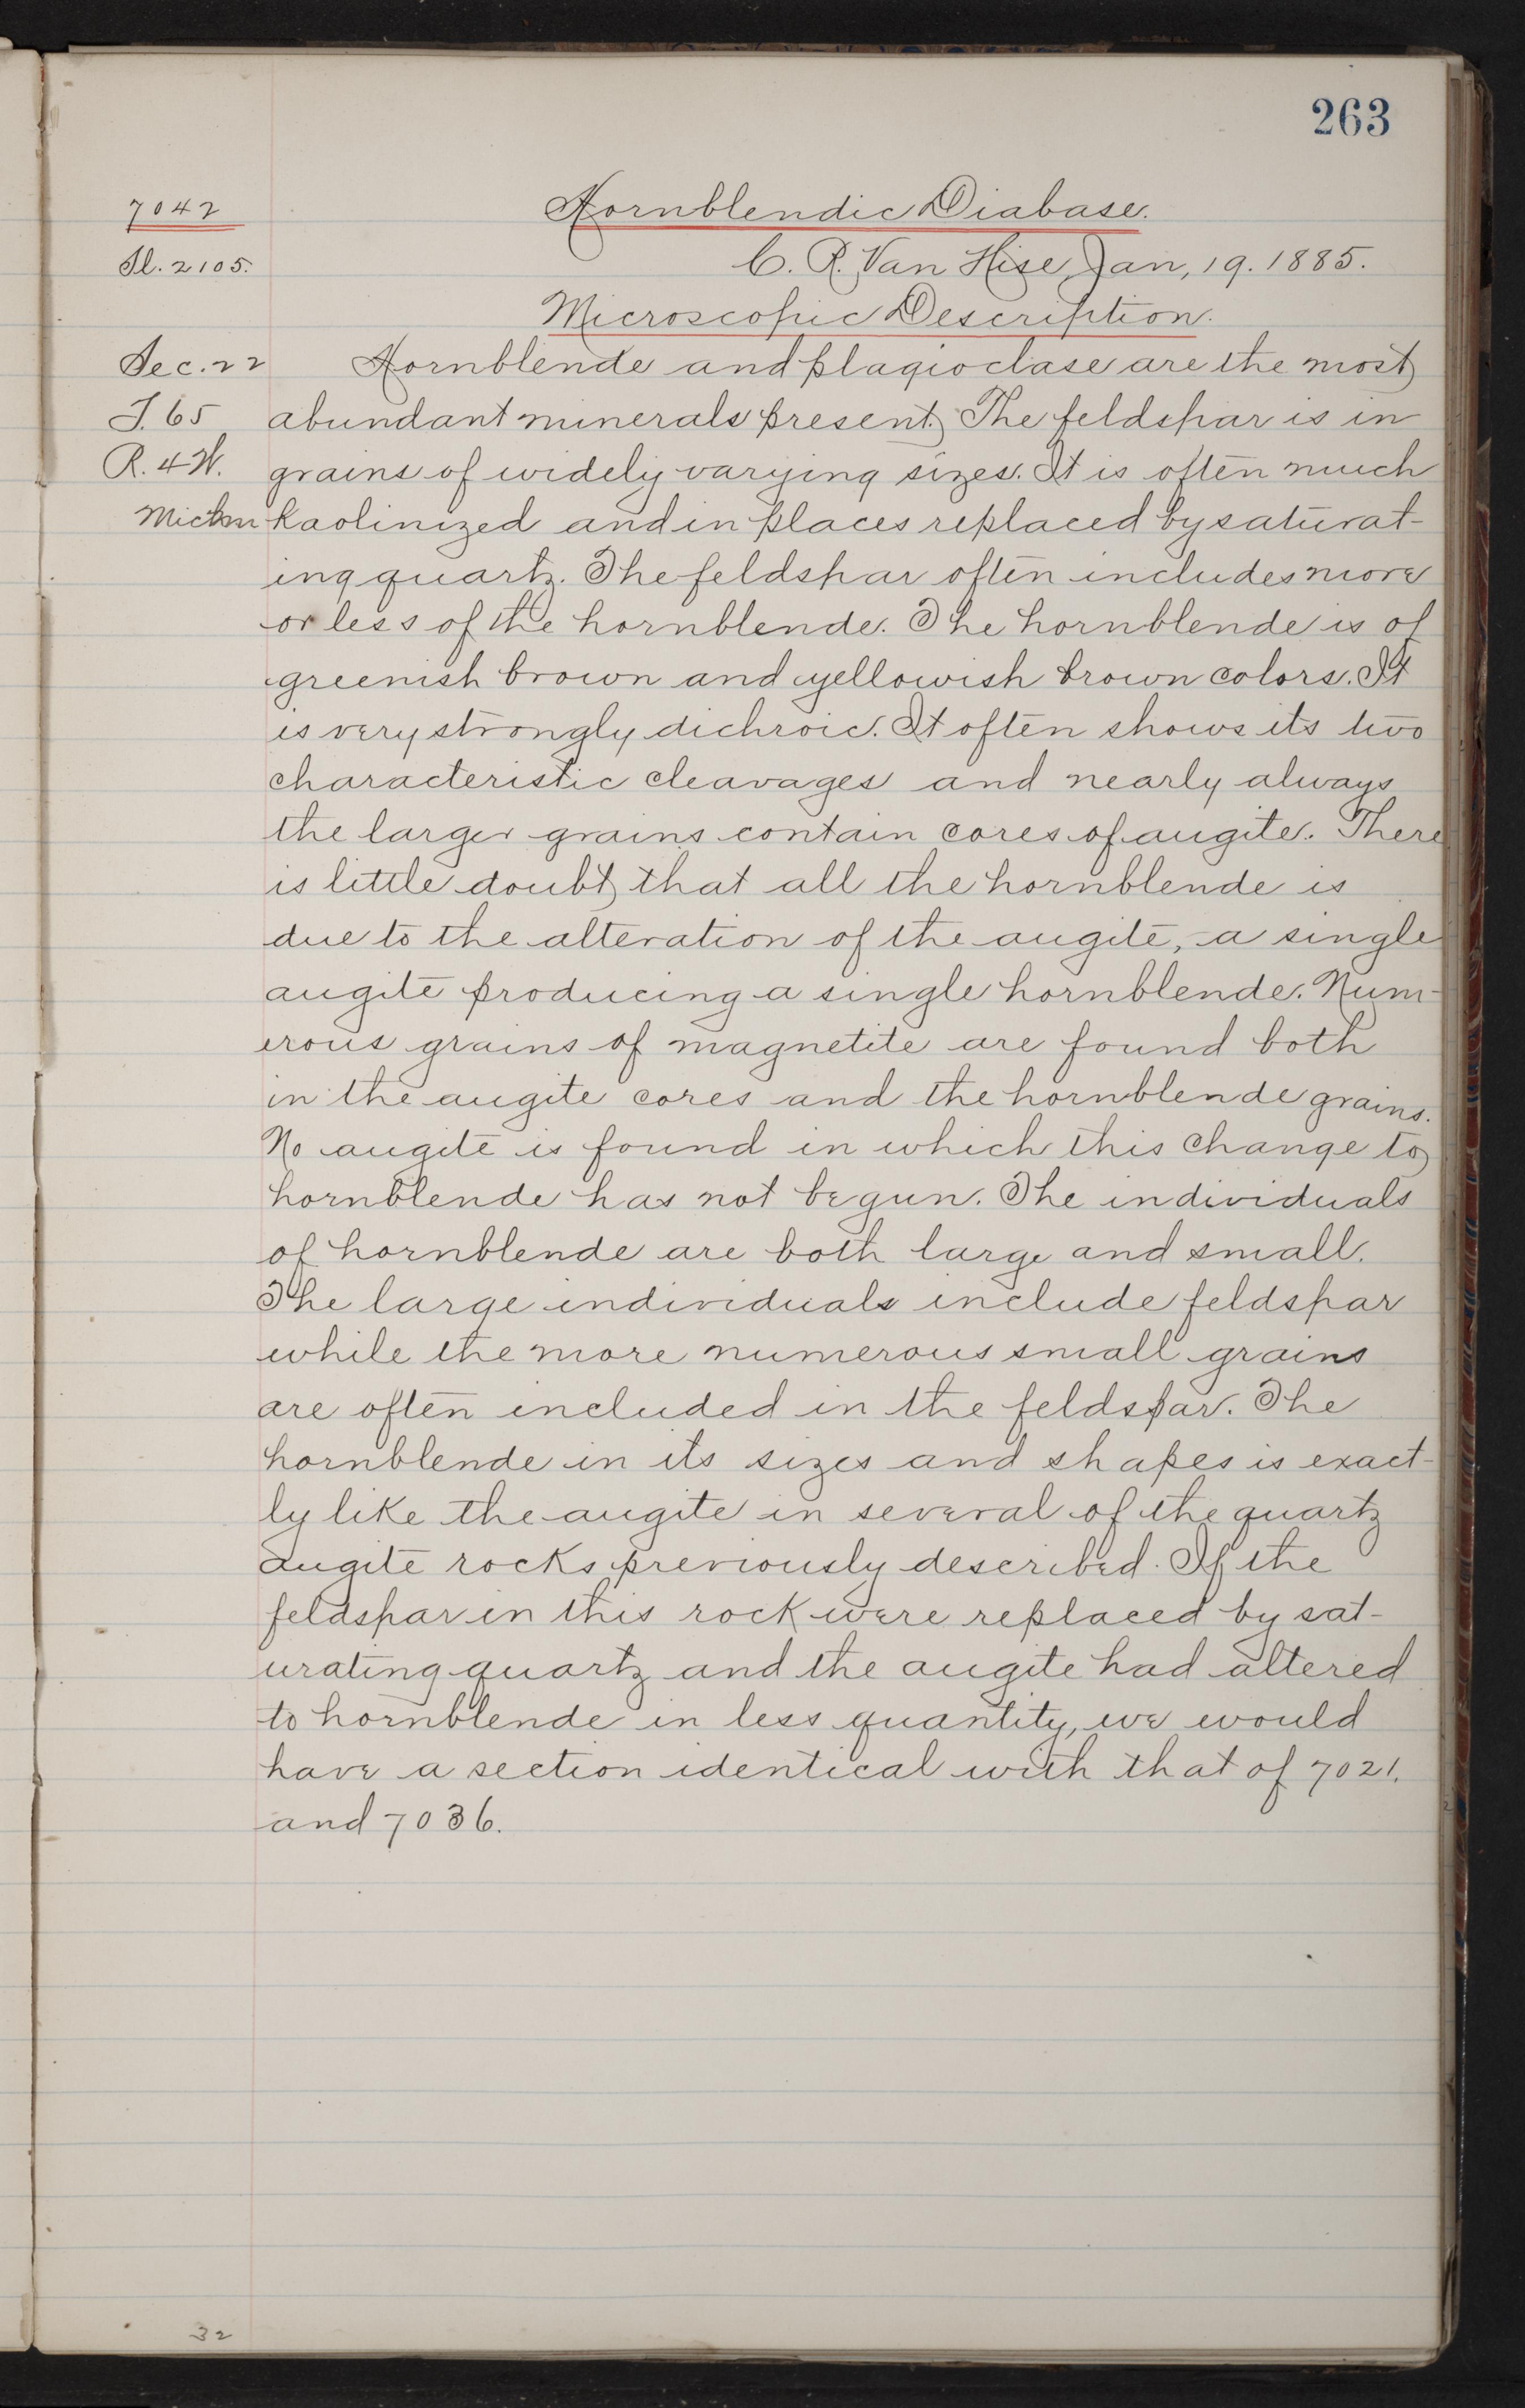 263
7042
Hornblendic Diabase.
Sl. 2105.
C. R. Van Hise, Jan, 19. 1885.
Microscopic Description.
Sec. 22
T. 65
R. 4 W.
Hornblende and plagioclase are the most
abundant minerals present. The feldspar is in
grains of widely varying sizes. It is often much
kaolinized and in places replaced by saturat-
ing quartz. The feldspar often includes more
or less of the hornblende. The hornblende is of
greenish brown and yellowish brown colors. It
is very strongly dichroic. It often shows its two
characteristic cleavages and nearly always
the larger grains contain cores of augite. There
is little doubt that all the hornblende is
due to the alteration of the augite, a single
augite producing a single hornblende. Num-
erous grains of magnetite are found both
in the augite cores and the hornblende grains.
No augite is found in which this change to
hornblende has not begun. The individuals
of hornblende are both large and small.
The large individuals include feldspar
while the more numerous small grains
are often included in the feldspar. The
hornblende in its sizes and shapes is exact-
ly like the augite in several of the quartz
augite rocks previously described. If the
feldspar in this rock were replaced by sat-
urating quartz and the augite had altered
to hornblende in less quantity, we would
have a section identical with that of 7021.
and 7036.
32